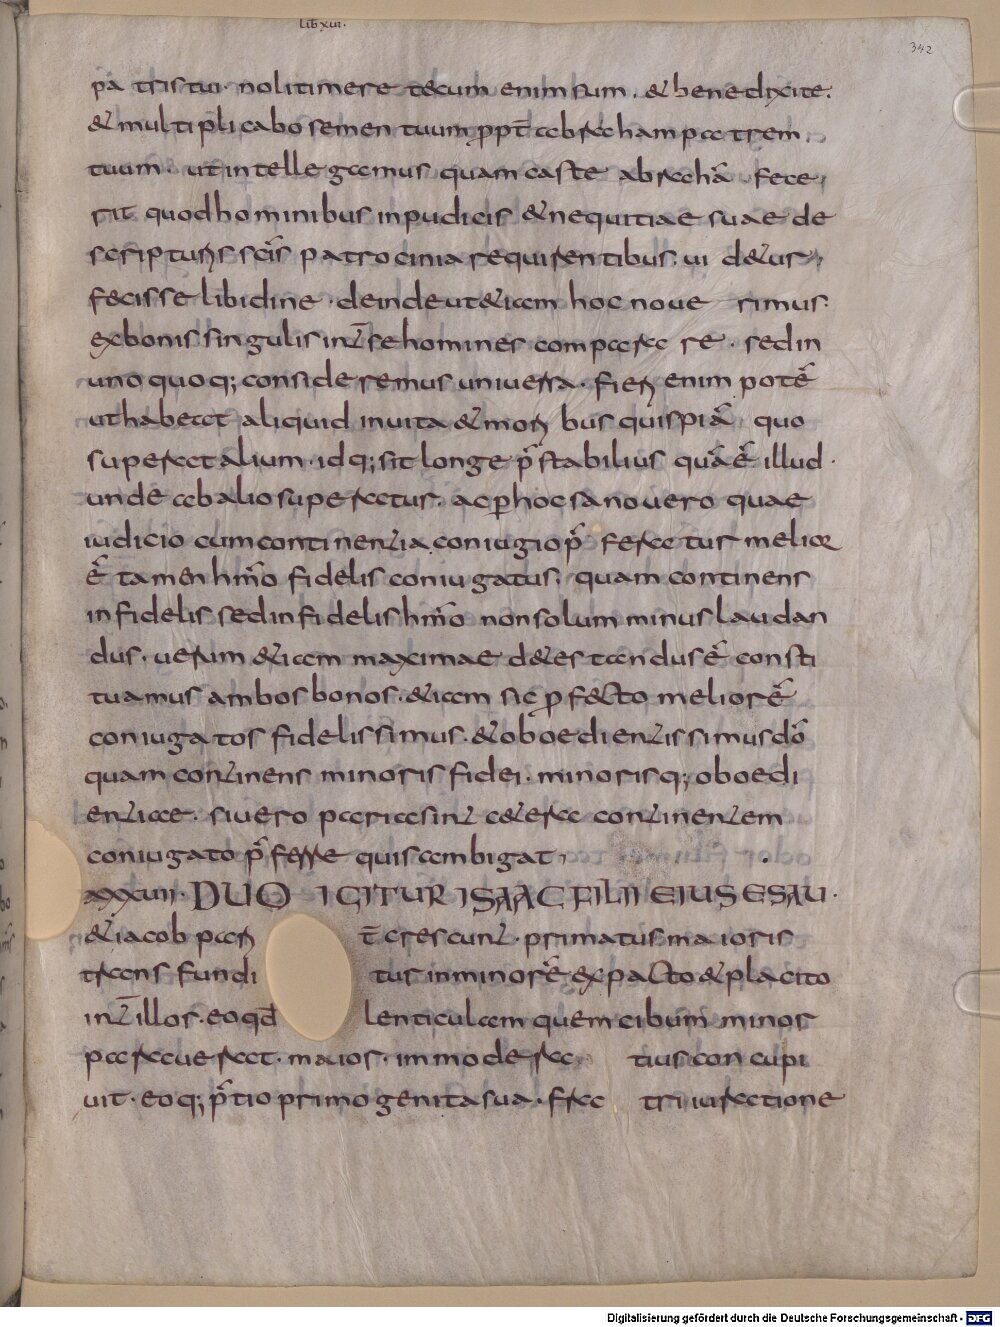 Lib xvi.
342
pa tris tui. noli timere tecum enim sum. & benedixi te.
& multiplicabo semen tuum ppt̄ abraham patrem
tuum. ut intellegamus quam caste abrahā fece
rit quod hominibus inpudicis & nequitiae suae de
scripturis scīs patrocinia requirentibus. uideatur
fecisse libidine. deinde ut &iam hoc nouerimus
ex bonis singulis int̄ se homines comparare. sed in
unoquoq; consideremus uniuersa. fieri enim potē
ut habeat aliquid in uita & moribus quispiā quo
superet alium. idq; sit longe p̄stabilius quā ē illud.
unde ab alio superetur. ac p hoc sano uero quae
iudicio cum continentia coniugio p̄feratur melior
ē tamen hōmo fidelis coniugatus. quam continens
infidelis sed infidelis hōmo non solum minus laudan
dus. uerum &iam maximae d&estandus ē consti
tuamus ambos bonos. &iam sic pfecto melior ē
coniugatos fidelissimus. & oboedientissimus dō
quam continens minoris fidei. minorisq; oboedi
entiae. si uero paria sint c&era continentem
coniugato p̄ferre quis ambigat.
xxxvii. DUO IGITUR ISAAC FILII EIUS ESAU.
& iacob parit̄ crescunt. primatus maioris
transfunditur in minorē ex pacto & placito
int̄ illos. eo qd̄ lenticulam quem cibum minor
parauerat. maior. immoderatius concupi
uit. eoq; p̄tio primogenita sua. fratri iuratione
Digitalisierung gefördert durch die Deutsche Forschungsgemeinschaft - DFG